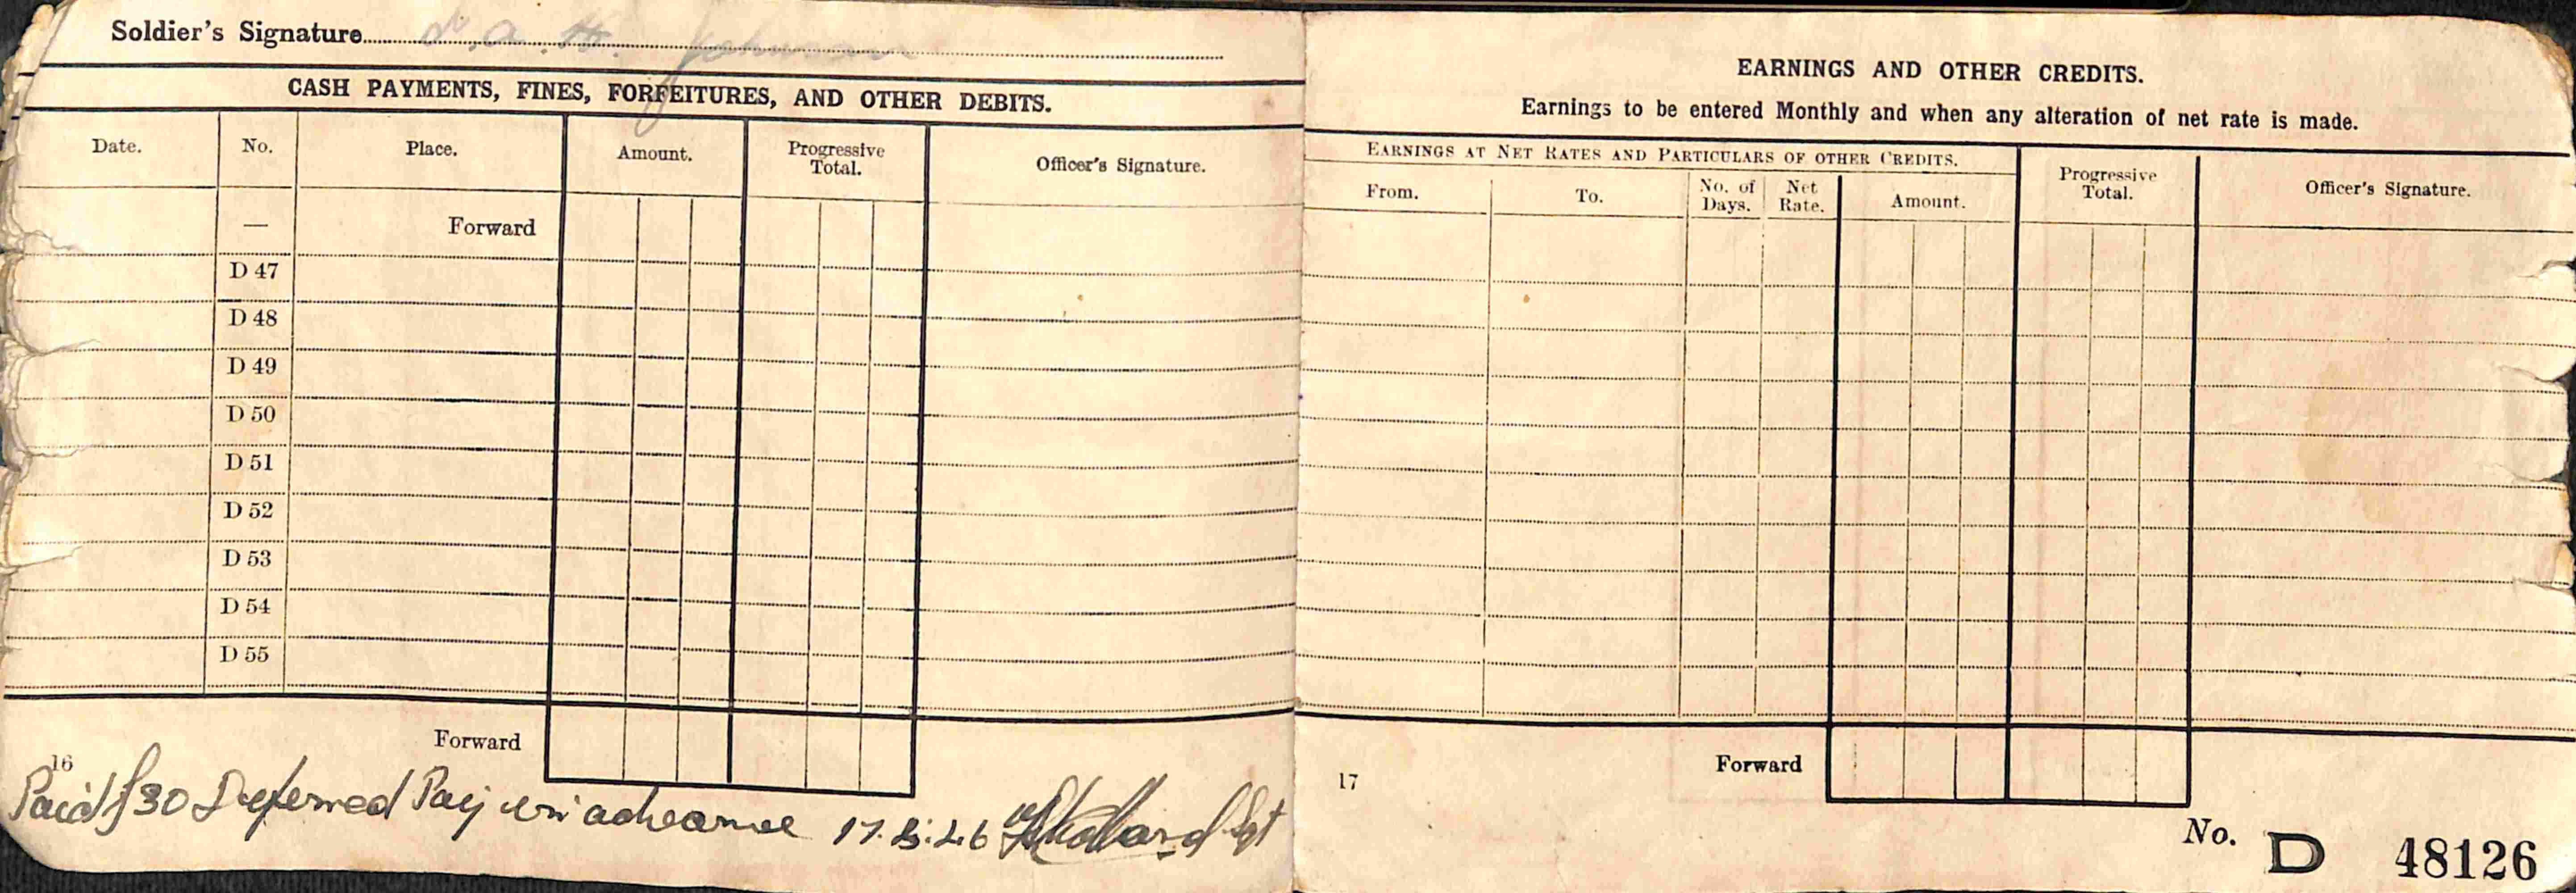 Soldier's Signature
CASH PAYMENTS, FINES, FORFEITURES, AND OTHER DEBITS.
Date. No. Place. Amount. Progressive Total. Officer's Signature.
— Forward
D 47
D 48
D 49
D 50
D 51
D 52
D 53
D 54
D 55
Forward
16
Paid £30 Deferred Pay in advance 17. 46 Sgt
EARNINGS AND OTHER CREDITS.
Earnings to be entered Monthly and when any alteration of net rate is made.
EARNINGS AT NET RATES AND PARTICULARS OF OTHER CREDITS.
From. To. No. of Days. Net Rate. Amount. Progressive Total. Officer's Signature.
Forward
17
No. D 48126